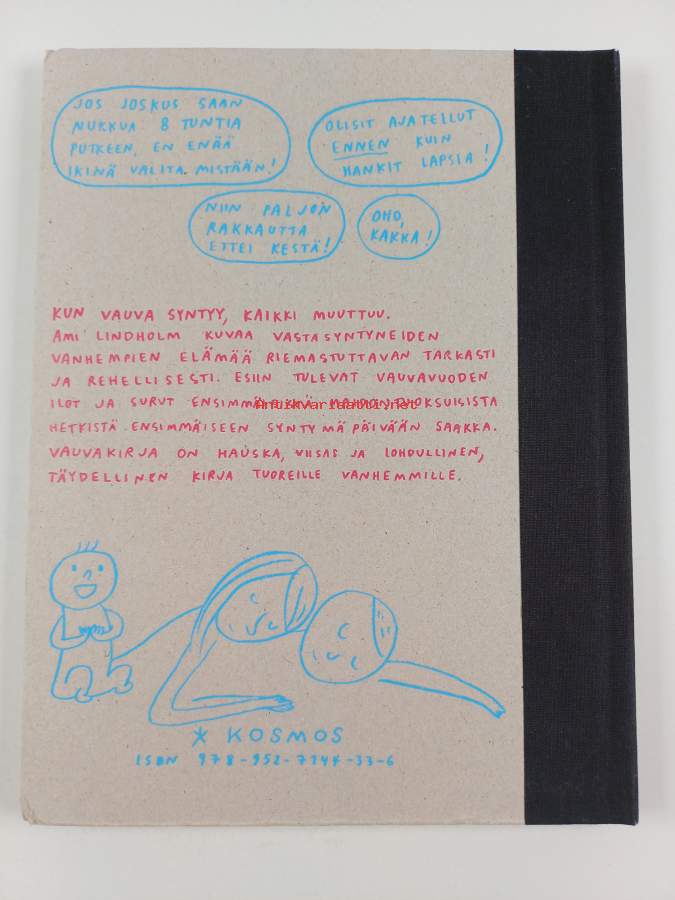 JOS JOSKUS SAAN
NUKKUA 8 TUNTIA
PUTKEEN, EN ENÄÄ
IKINÄ VALITA MISTÄÄN!
OLISIT AJATELLUT
ENNEN KUIN
HANKIT LAPSIA!
NIIN PALJON
RAKKAUTTA
ETTEI KESTÄ!
OHO,
KAKKA!
KUN VAUVA SYNTYY, KAIKKI MUUTTUU.
AMI LINDHOLM KUVAA VASTASYNTYNEIDEN
VANHEMPIEN ELÄMÄÄ RIEMASTUTTAVAN TARKASTI
JA REHELLISESTI. ESIIN TULEVAT VAUVAVUODEN
ILOT JA SURUT ENSIMMÄISISTÄ
Antikvariaatti.net
HETKISTÄ ENSIMMÄISEEN SYNTYMÄPÄIVÄÄN SAAKKA.
VAUVAKIRJA ON HAUSKA, VIISAS JA LOHDULLINEN,
TÄYDELLINEN KIRJA TUOREILLE VANHEMMILLE.
KOSMOS
ISBN 978-952-7144-33-6